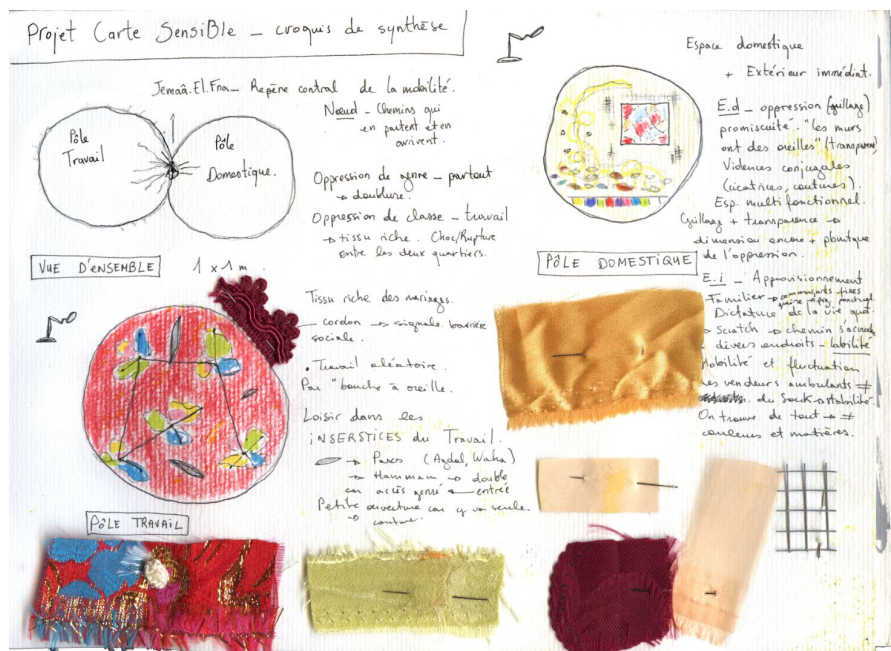 Projet Carte Sensible _ croquis de synthèse
Jemaâ.El.Fna_ Repère central de la mobilité.
Pôle
Travail
Pôle
Domestique.
Nœud _ Chemins qui
en partent et en
arrivent.
Oppression de genre _ partout
→ doublure.
Oppression de classe _ travail
→ tissu riche. Choc/Rupture
entre les deux quartiers.
VUE D'ENSEMBLE
1 x 1 m.
Tissu riche des mariages.
_ cordon → signale barrière
sociale.
• Travail aléatoire.
Par "bouche à oreille.
Loisir dans les
INSERSTICES du Travail.
→ Parcs (Agdal, Waha)
→ Hammam → double
car accès genré ← entrée
Petite ouverture car y va seule
→ couture.
PÔLE TRAVAIL
Espace domestique
+ Extérieur immédiat.
E.d _ oppression (grillage)
promiscuité. "les murs
ont des oreilles" (transparent)
Violences conjugales
(cicatrices, coutures).
Esp. multifonctionnel.
Grillage + transparence →
dimension encore +
de l'oppression.
PÔLE DOMESTIQUE
E.i _ Approvisionnement
Familier → commerçants fixes
Dictature de la vie quot.
→ Scratch → chemin
à divers endroits _ labilité
Mobilité et fluctuation
des vendeurs ambulants ≠
du Souk → stabilité
On trouve de tout → ≠
couleurs et matières.